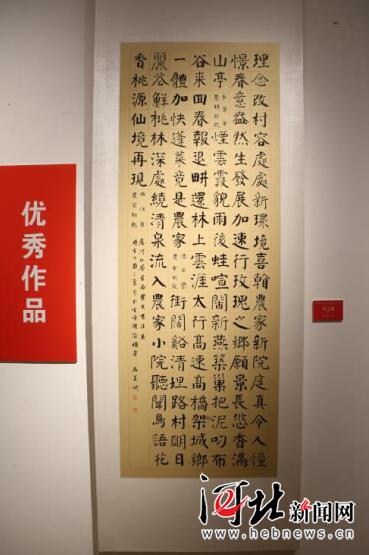 理念改村容處處新環境喜翰農家新院庭真令人憧
憬春意盎然生發展加速行玫瑰之鄉願景長悠香滿
山亭煙雲霞貌雨後蛙喧鬧新燕築巢把泥叼布
谷來回春報退耕還林上雲涯太行高速高橋架城鄉
一體加快蓬萊竟是農家街闊谿清坦路村朗日
麗谷鮮桃林深處繞清泉流入農家小院聽聞鳥語花
香桃源仙境再現
优秀作品
河北新闻网
www.hebnews.cn